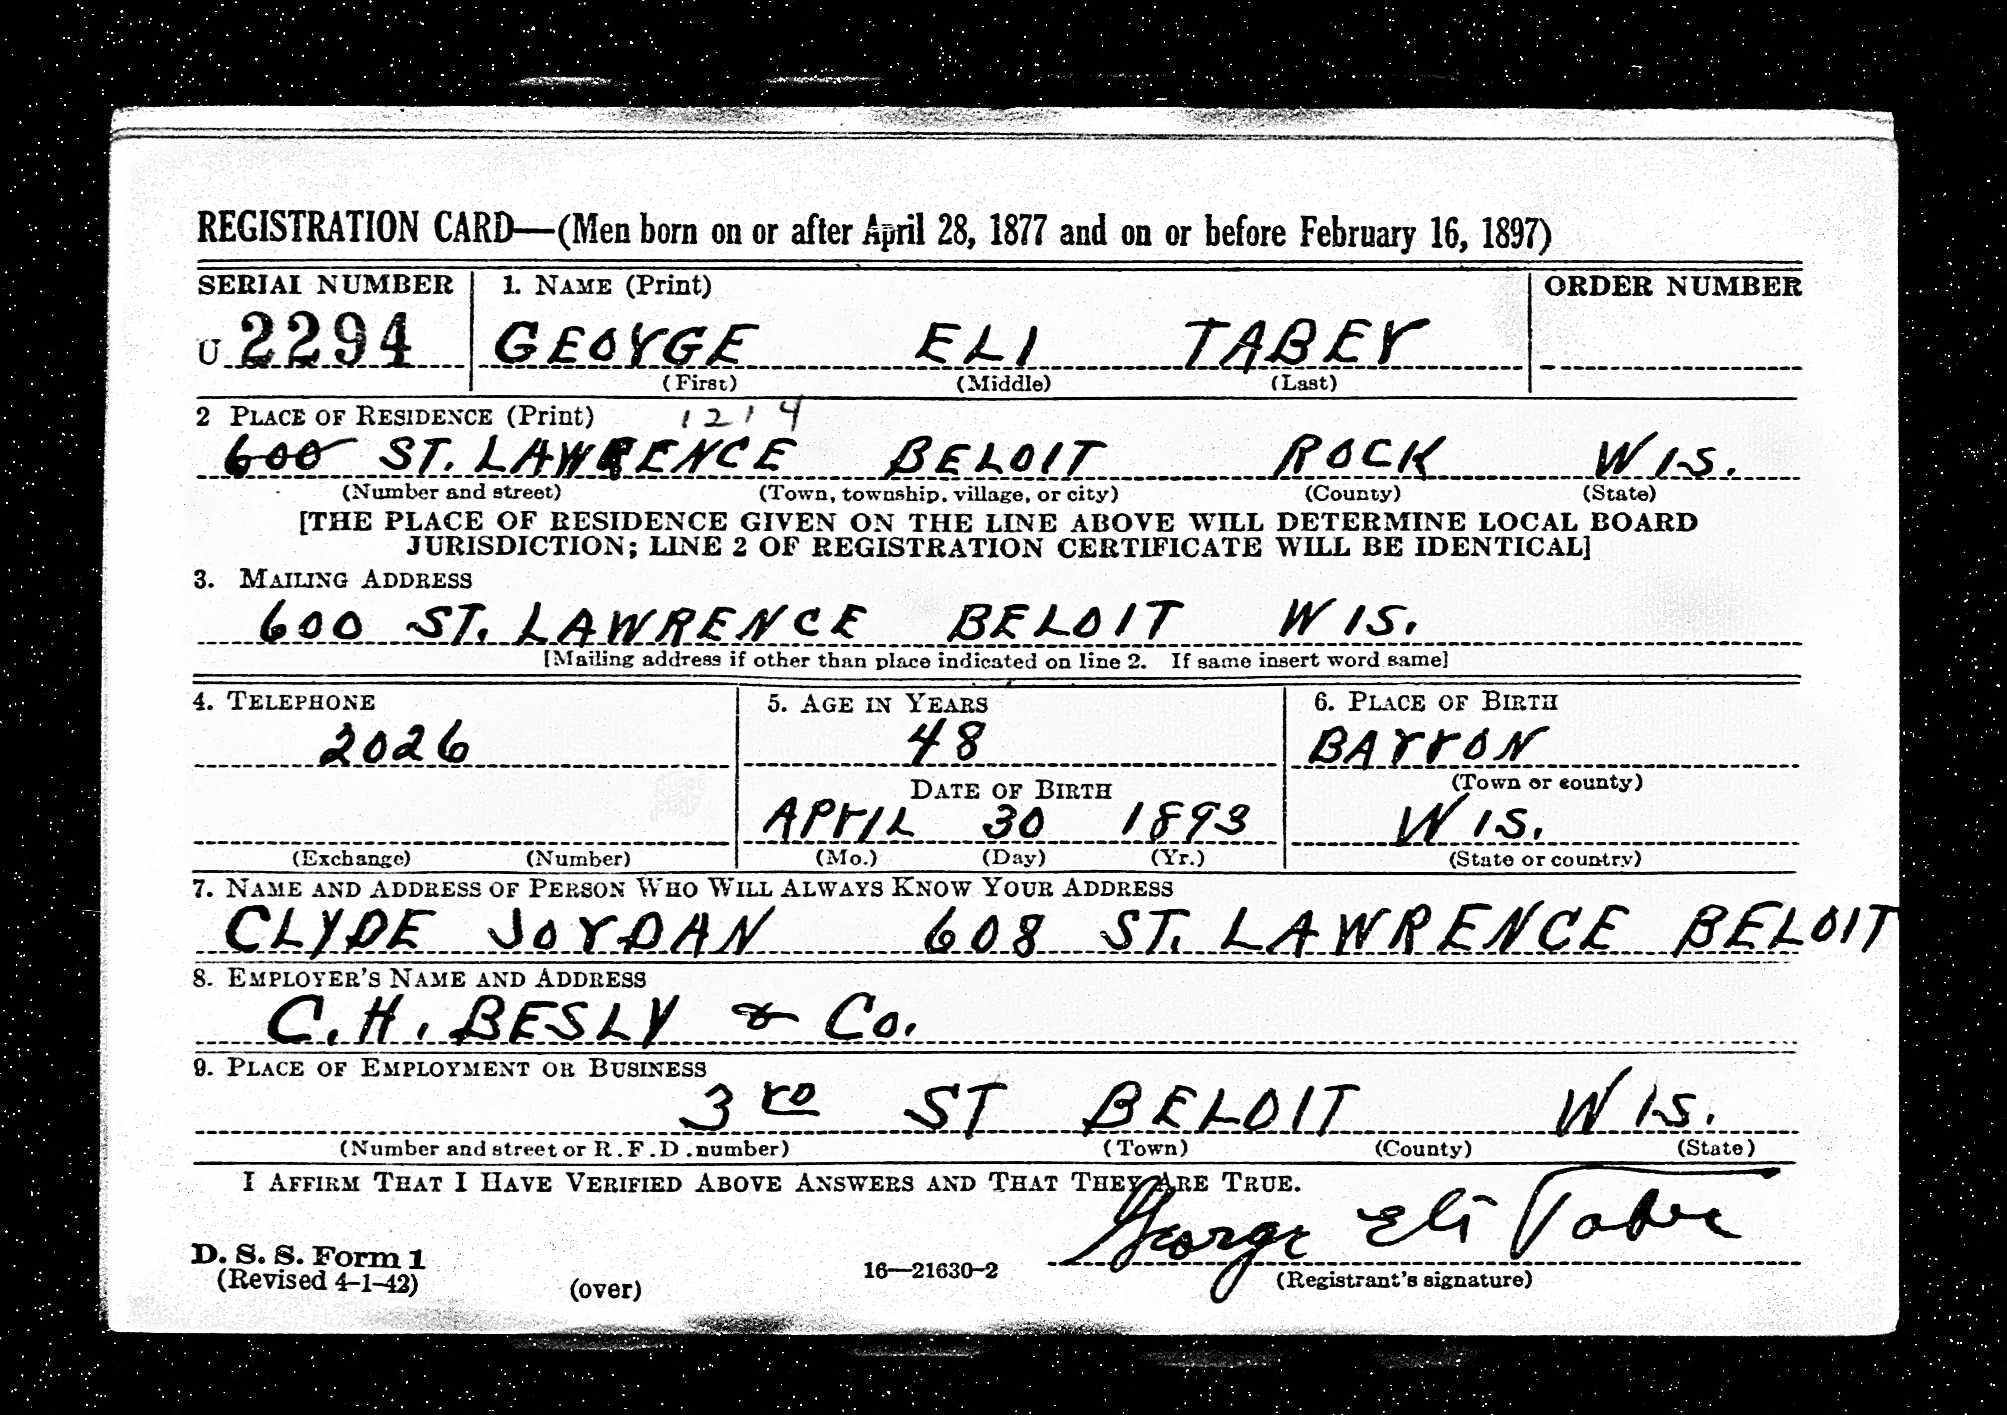 REGISTRATION CARD—(Men born on or after April 28, 1877 and on or before February 16, 1897)
SERIAL NUMBER 1. NAME (Print) ORDER NUMBER
U 2294 GEORGE ELI TABER
(First) (Middle) (Last)
2 PLACE OF RESIDENCE (Print) 1214
600 ST. LAWRENCE BELOIT ROCK WIS.
(Number and street) (Town, township, village, or city) (County) (State)
[THE PLACE OF RESIDENCE GIVEN ON THE LINE ABOVE WILL DETERMINE LOCAL BOARD
JURISDICTION; LINE 2 OF REGISTRATION CERTIFICATE WILL BE IDENTICAL]
3. MAILING ADDRESS
600 ST. LAWRENCE BELOIT WIS.
[Mailing address if other than place indicated on line 2. If same insert word same]
4. TELEPHONE 5. AGE IN YEARS 6. PLACE OF BIRTH
2026 48 BARRON
DATE OF BIRTH (Town or county)
APRIL 30 1893 WIS.
(Exchange) (Number) (Mo.) (Day) (Yr.) (State or country)
7. NAME AND ADDRESS OF PERSON WHO WILL ALWAYS KNOW YOUR ADDRESS
CLYDE JORDAN 608 ST. LAWRENCE BELOIT
8. EMPLOYER'S NAME AND ADDRESS
C. H. BESLY & Co.
9. PLACE OF EMPLOYMENT OR BUSINESS
3RD ST BELOIT WIS.
(Number and street or R.F.D. number) (Town) (County) (State)
I AFFIRM THAT I HAVE VERIFIED ABOVE ANSWERS AND THAT THEY ARE TRUE.
George Eli Taber
D. S. S. Form 1
(Revised 4-1-42) (over) 16—21630-2 (Registrant's signature)